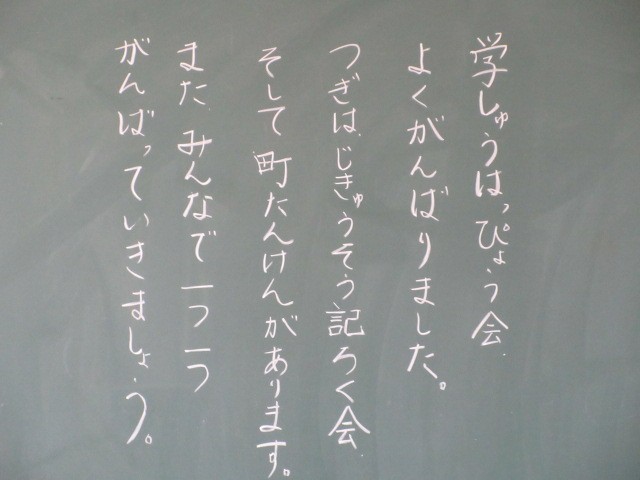 学しゅうはっぴょう会、
よくがんばりました。
つぎは、じきゅうそう記ろく会、
そして町たんけんがあります。
また、みんなで一つ一つ
がんばっていきましょう。